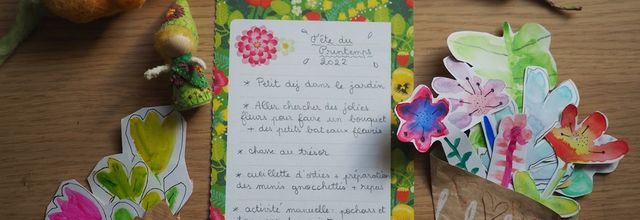 Fête du
Printemps
2022
* Petit dej dans le jardin
* Aller chercher des jolies
fleurs pour faire un bouquet
+ des petits bateaux fleuris
* chasse au trésor
* cueillette d'orties + préparation
des minis gnocchettes + repas
* activité manuelle: pochoirs et